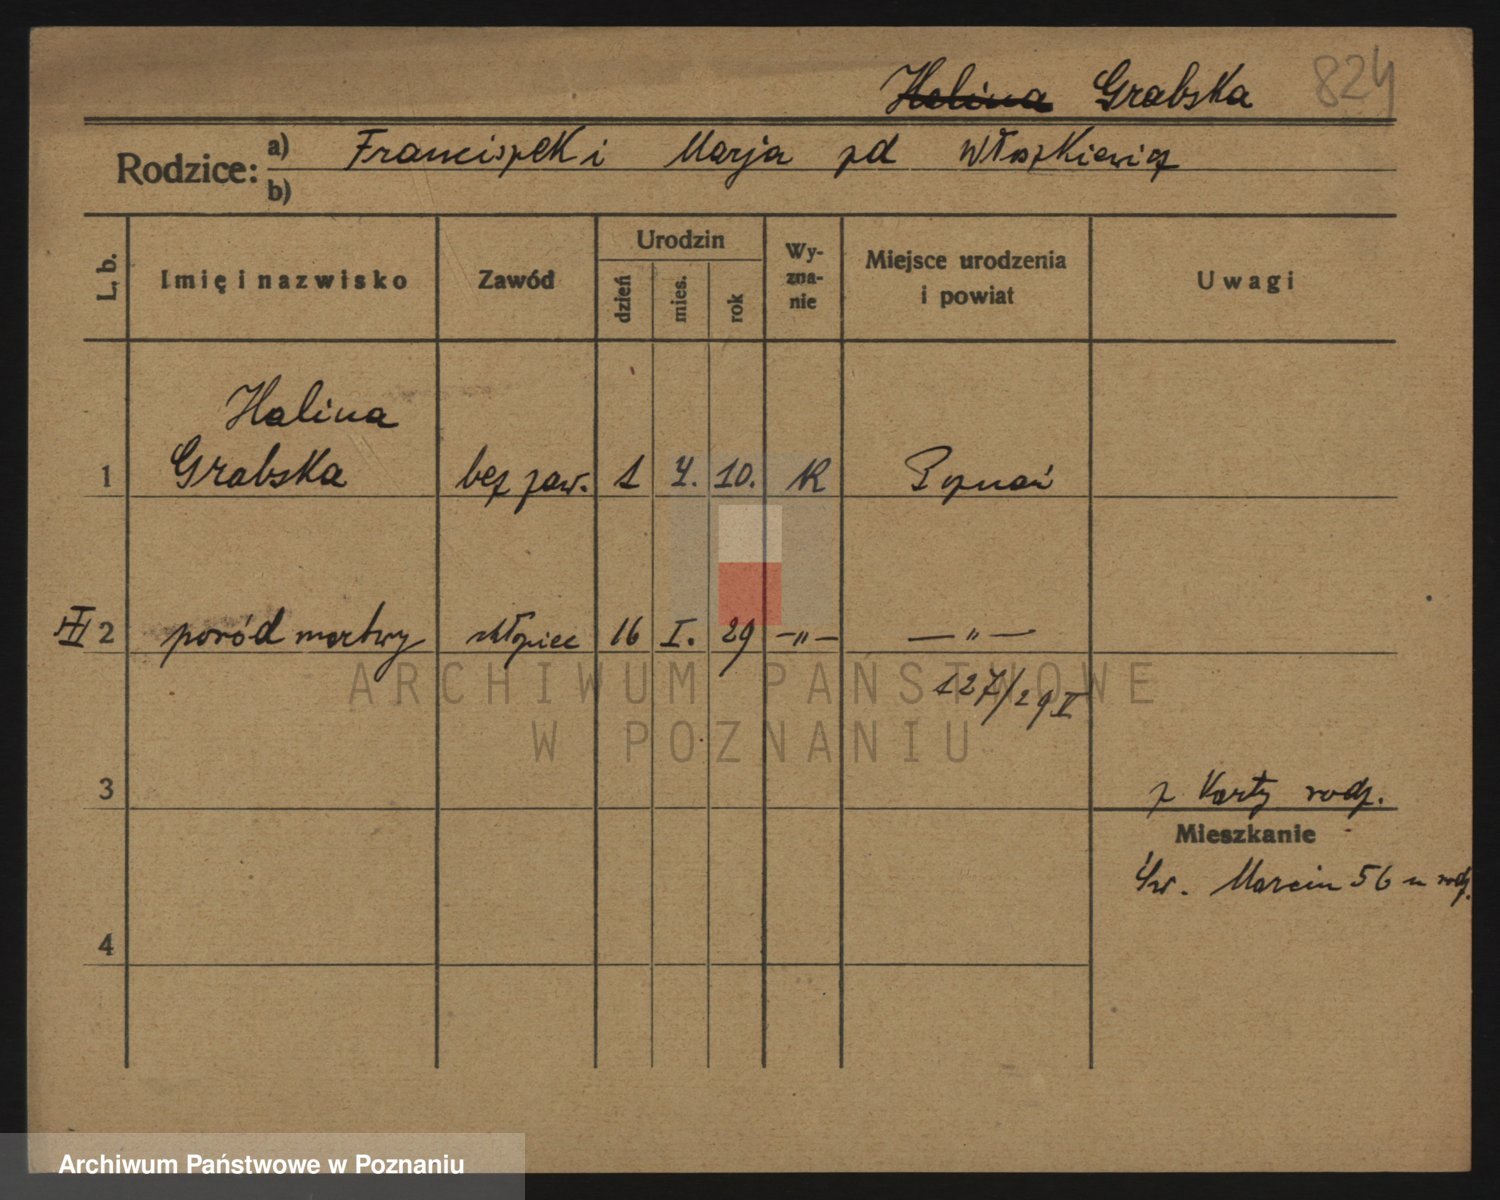 Halina Grabska 824
Rodzice: a) Franciszek i Marja zd Włoszkiewicz
b)
L. b.
Imię i nazwisko
Zawód
Urodzin
dzień
mies.
rok
Wy-
zna-
nie
Miejsce urodzenia
i powiat
Uwagi
Halina
1 Grabska bez zaw. 1 4. 10. K Poznań
III 2 poród martwy chłopiec 16 I. 29 —"— —"—
127/29 I
3
z Karty rodz.
Mieszkanie
Św. Marcin 56 u rodz.
4
ARCHIWUM PAŃSTWOWE
W POZNANIU
Archiwum Państwowe w Poznaniu